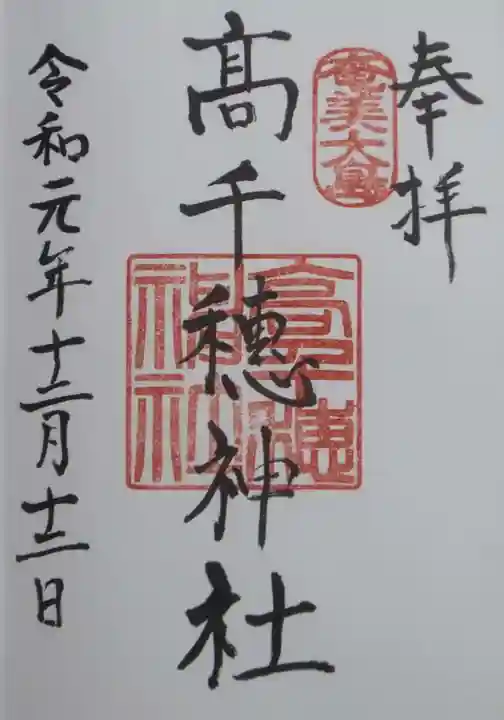 奉拝
奄美大島
髙千穂神社
高千穂
神社
令和元年十二月十三日